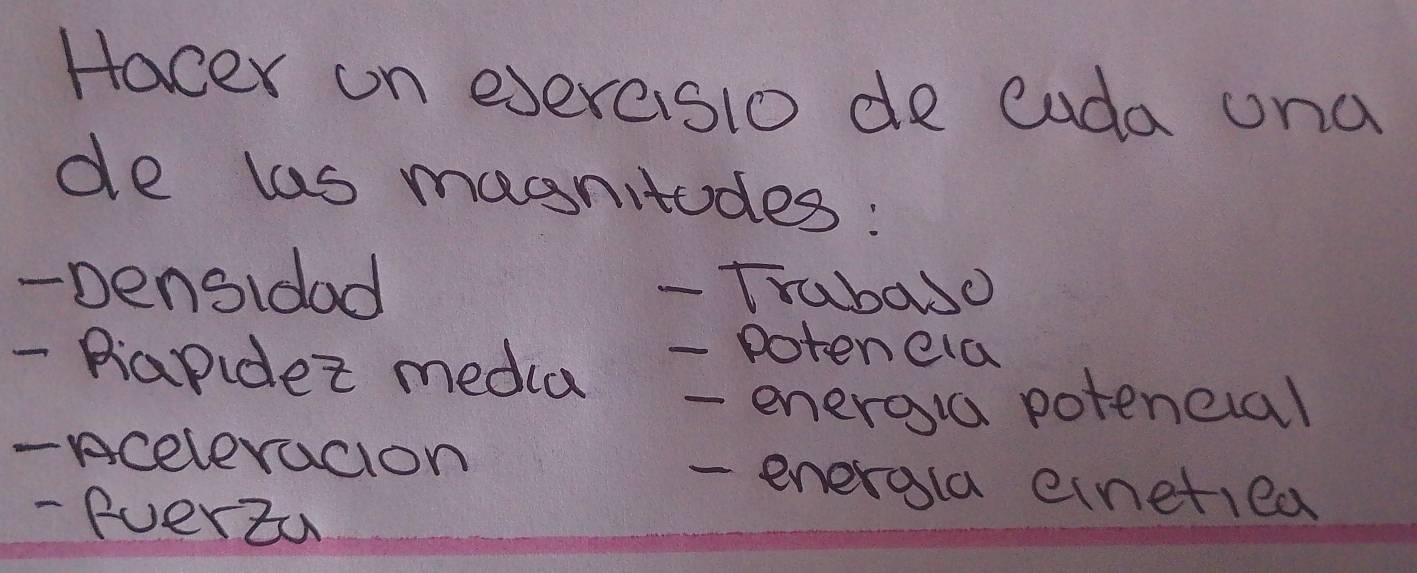 Hacer un ejercisio de cada una
de las magnitudes:
-Densidad
- Riapidez media
-Aceleracion
- fuerza
- Trabajo
- potencia
- energia potencial
- energia cinetica